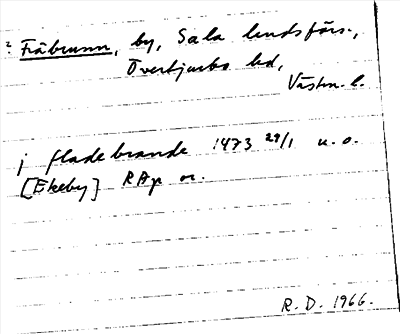 ? Fräbrunn, by, Sala landsförs.,
Övertjurbo hd,
Västm. l.
j fladebrande 1473 29/1 u. o.
[Ekeby] RAp or.
R. D. 1966.